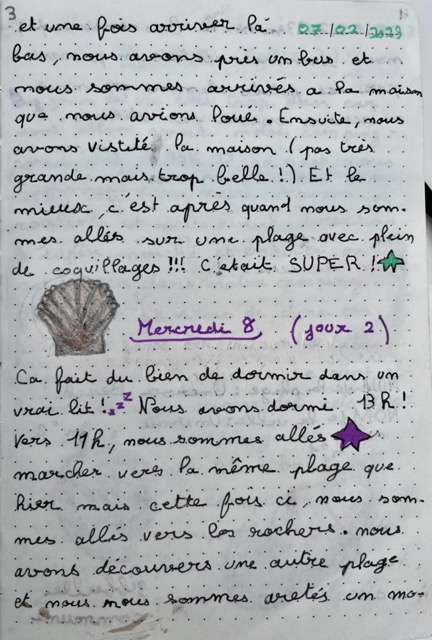 3
et une fois arriver là 07/02/2023
bas, nous avons pris un bus et
nous sommes arrivés a la maison
que nous avions loué. Ensuite, nous
avons vistité la maison (pas très
grande mais trop belle!) Et le
mieux, c'est après quand nous som-
mes allés sur une plage avec plein
de coquillages!!! C'était SUPER!
Mercredi 8 (jour 2)
Ca fait du bien de dormir dans un
vrai lit! zzz Nous avons dormi 13h!
Vers 11h, nous sommes allés
marcher vers la même plage que
hier mais cette fois ci, nous som-
mes allés vers les rochers. nous
avons découvers une autre plage
et nous nous sommes aretés un mo-